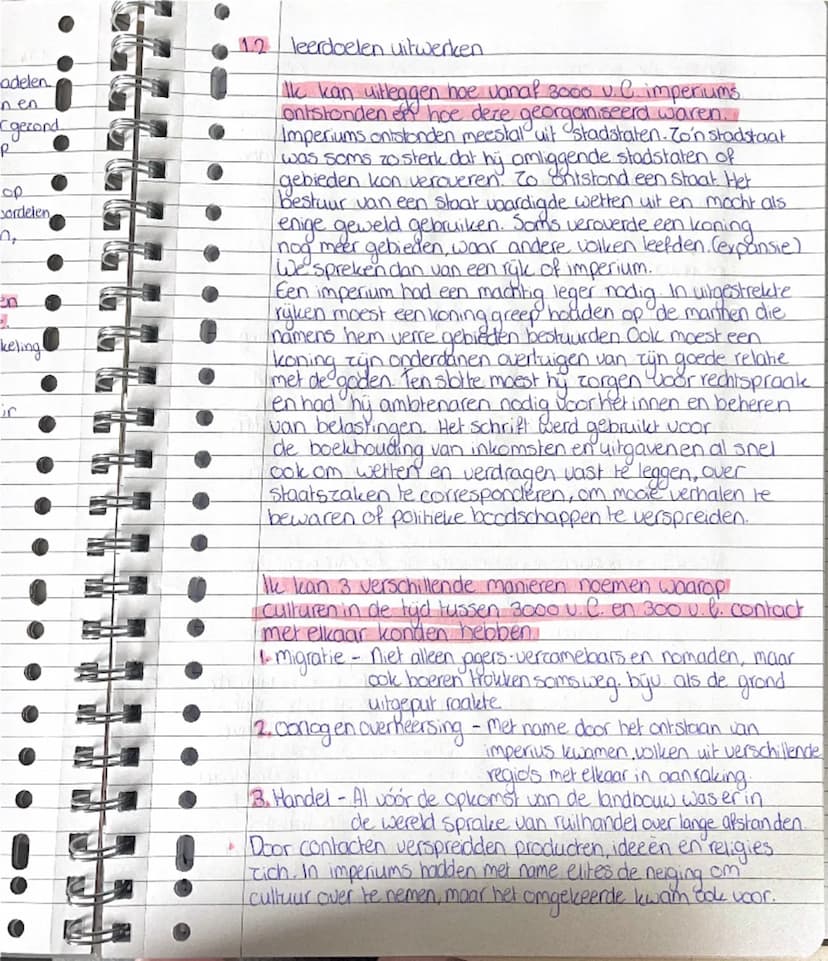 adelen
n en
gezond
p
op
oordelen
n,
en
keling
ir
1.2 leerdoelen uitwerken
Ik kan uitleggen hoe vanaf 3000 v.C. imperiums
ontstonden en hoe deze georganiseerd waren.
Imperiums ontstonden meestal uit stadstaten. Zo'n stadstaat
was soms zo sterk dat hij omliggende stadstaten of
gebieden kon veroveren. Zo ontstond een staat. Het
bestuur van een staat vaardigde wetten uit en macht als
enige geweld gebruiken. Soms veroverde een koning
nog meer gebieden, waar andere volken leefden. (expansie)
We spreken dan van een rijk of imperium.
Een imperium had een machtig leger nodig. In uitgestrekte
rijken moest een koning greep houden op de mannen die
namens hem verre gebieden bestuurden. Ook moest een
koning zijn onderdanen overtuigen van zijn goede relatie
met de goden. Ten slotte moest hij zorgen voor rechtspraak
en had hij ambtenaren nodig voor het innen en beheren
van belastingen. Het schrift werd gebruikt voor
de boekhouding van inkomsten en uitgaven en al snel
ook om wetten en verdragen vast te leggen, over
staatszaken te corresponderen, om mooie verhalen te
bewaren of politieke boodschappen te verspreiden.
Ik kan 3 verschillende manieren noemen waarop
culturen in de tijd tussen 3000 v.C. en 300 v.C. contact
met elkaar konden hebben.
1. Migratie - Niet alleen jagers-verzamelaars en nomaden, maar
ook boeren trokken soms weg. bijv als de grond
uitgeput raakte.
2. Oorlog en overheersing - Met name door het ontstaan van
imperius kwamen volken uit verschillende
regio's met elkaar in aanraking.
3. Handel - Al vóór de opkomst van de landbouw was er in
de wereld sprake van ruilhandel over lange afstanden.
Door contacten verspreidden producten, ideeën en religies
zich. In imperiums hadden met name elites de neiging om
cultuur over te nemen, maar het omgekeerde kwam ook voor.